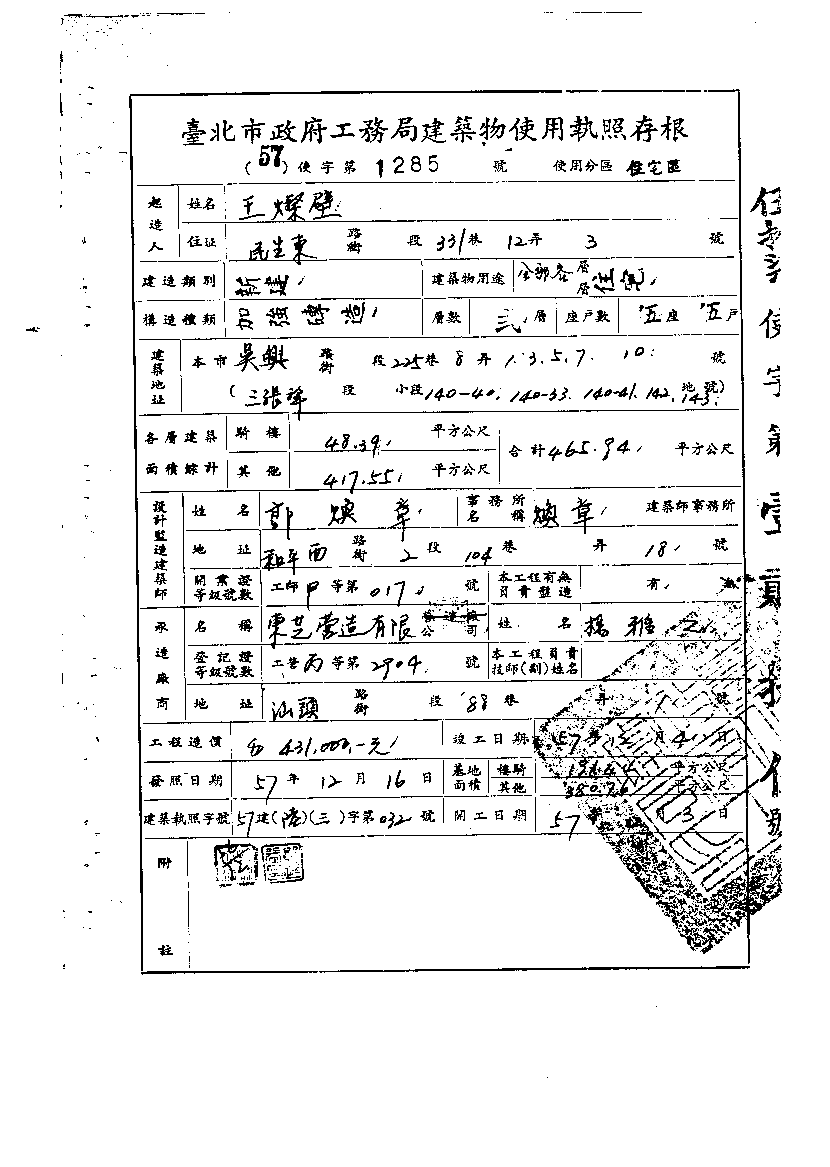 臺北市政府工務局建築物使用執照存根
(57)使字第1285號 使用分區 住宅區
起造人 姓名 王燦壁
住址 民生東 路街 段331巷12弄3號
建造類別 新建 建築物用途 全部各層層住宅
構造種類 加強磚造 層數 弍層 座戶數 五座五戶
建築地址 本市吳興 路街 段225巷8弄1.3.5.7.10.號
(三張犁 段 小段140-40.140-33.140-41.142.143.地號)
各層建築面積綜計 騎樓 48.39 平方公尺 合計465.94 平方公尺
其他 417.55 平方公尺
設計監造建築師 姓名 鄭煥章 事務所名稱 煥章 建築師事務所
地址 和平西 路街 2段104巷 弄18號
開業證等級號數 工師甲等第017號 本工程有無負責監造 有
承造廠商 名稱 東芝營造有限公司 姓名 楊雅之
登記證等級號數 工營丙等第2904號 本工程負責技師(副)姓名
地址 汕頭 路街 段88巷 弄1號
工程造價 431,000,-元 竣工日期 57年12月4日
發照日期 57年12月16日 基地面積 騎樓 平方公尺
其他 平方公尺
建築執照字號 57建(陸)(三)字第032號 開工日期 57年 月3日
附註
使字第壹貳捌 號